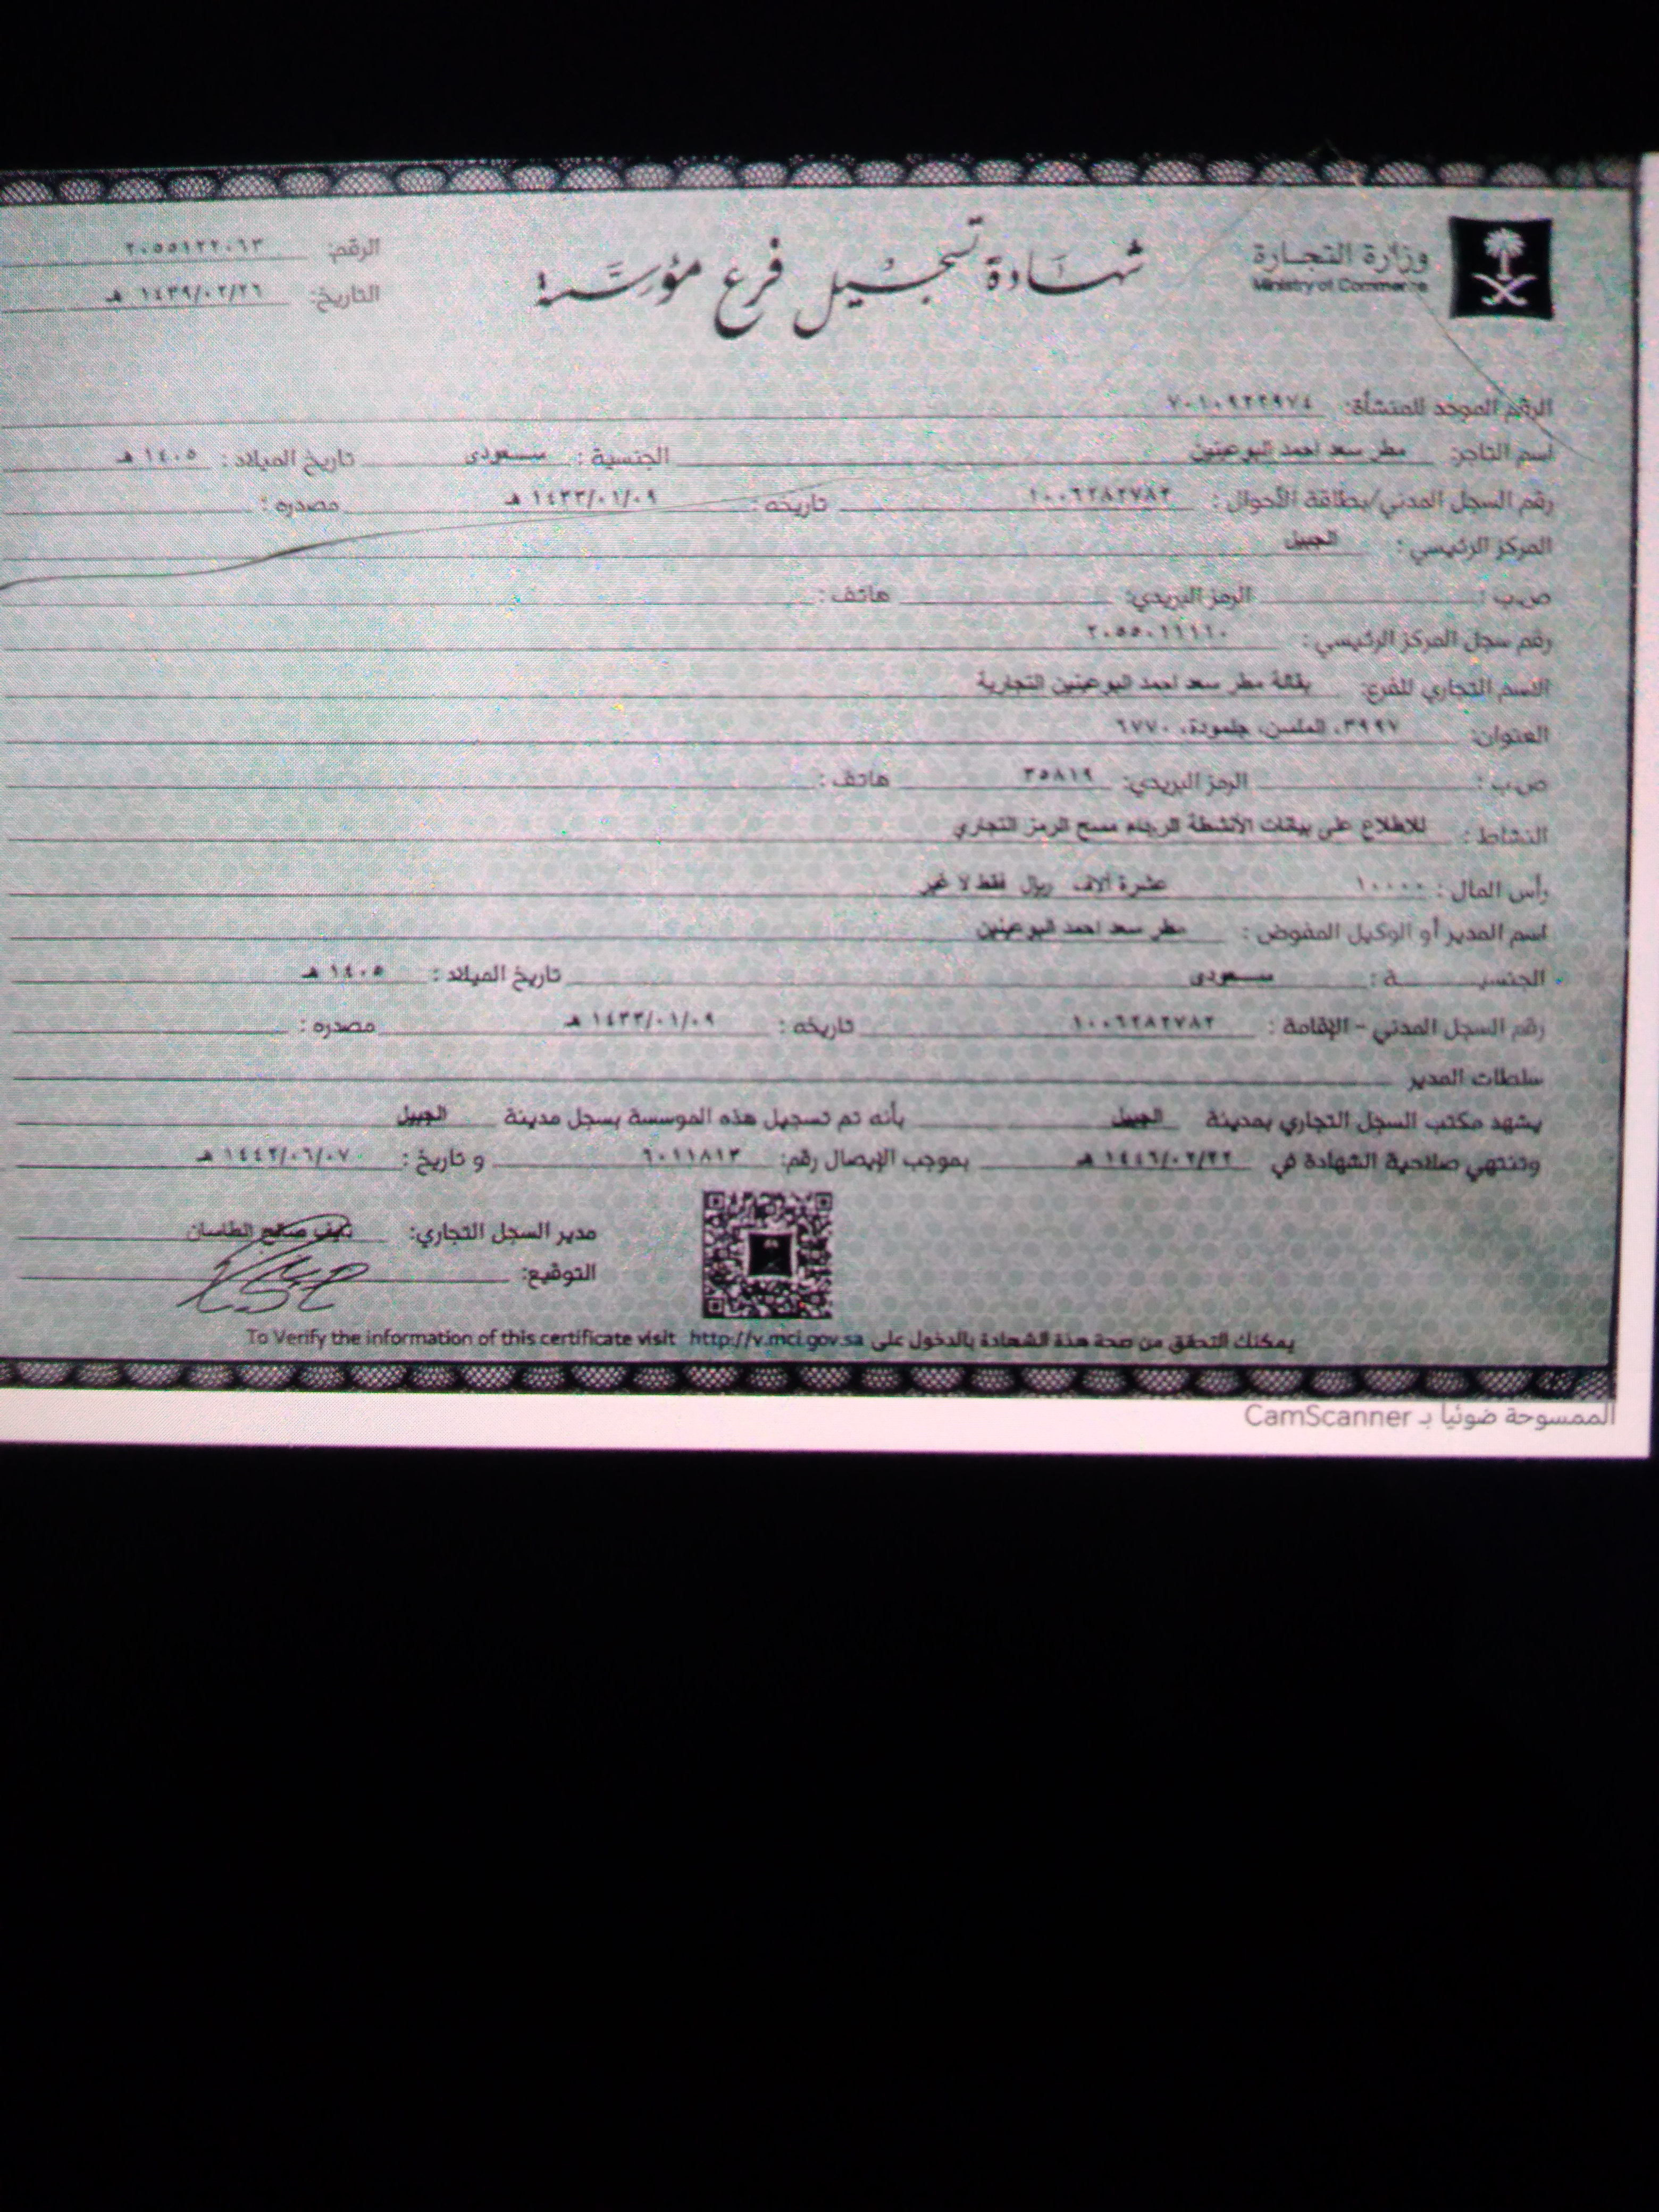 وزارة التجارة
Ministry of Commerce
شهادة تسجيل فرع مؤسسة
الرقم: ٢٠٥٥١٢٢٠٦٣
التاريخ: ١٤٣٩/٠٢/٢٦ هـ
الرقم الموحد للمنشأة: ٧٠١٠٩٢٢٩٧٤
اسم التاجر: مطر سعد احمد البوعينين الجنسية : سعودى تاريخ الميلاد : ١٤٠٥ هـ
رقم السجل المدني/بطاقة الأحوال : ١٠٠٦٢٨٢٧٨٢ تاريخه : ١٤٣٣/٠١/٠٩ هـ مصدره :
المركز الرئيسي : الجبيل
ص.ب : الرمز البريدي: هاتف :
رقم سجل المركز الرئيسي : ٢٠٥٥٠١١١١٠
الاسم التجاري للفرع: بقالة مطر سعد احمد البوعينين التجارية
العنوان: ٣٩٩٧، الملسن، جلمودة، ٦٧٧٠
ص.ب : الرمز البريدي: ٣٥٨١٩ هاتف :
النشاط : للاطلاع على بيانات الأنشطة الرجاء مسح الرمز التجاري
رأس المال : ١٠٠٠٠ عشرة آلاف ريال فقط لا غير
اسم المدير أو الوكيل المفوض : مطر سعد احمد البوعينين
الجنسيـــة : سعودى تاريخ الميلاد : ١٤٠٥ هـ
رقم السجل المدني - الإقامة : ١٠٠٦٢٨٢٧٨٢ تاريخه : ١٤٣٣/٠١/٠٩ هـ مصدره :
سلطات المدير
يشهد مكتب السجل التجاري بمدينة الجبيل بأنه تم تسجيل هذه الموسسة بسجل مدينة الجبيل
وتنتهي صلاحية الشهادة في ١٤٤٦/٠٢/٢٢ هـ بموجب الإيصال رقم: ٦٠١١٨١٣ و تاريخ : ١٤٤٢/٠٦/٠٧ هـ
مدير السجل التجاري: نايف صالح الطاسان
التوقيع:
يمكنك التحقق من صحة هذة الشهادة بالدخول على To Verify the information of this certificate visit http://v.mci.gov.sa
الممسوحة ضوئيا بـ CamScanner